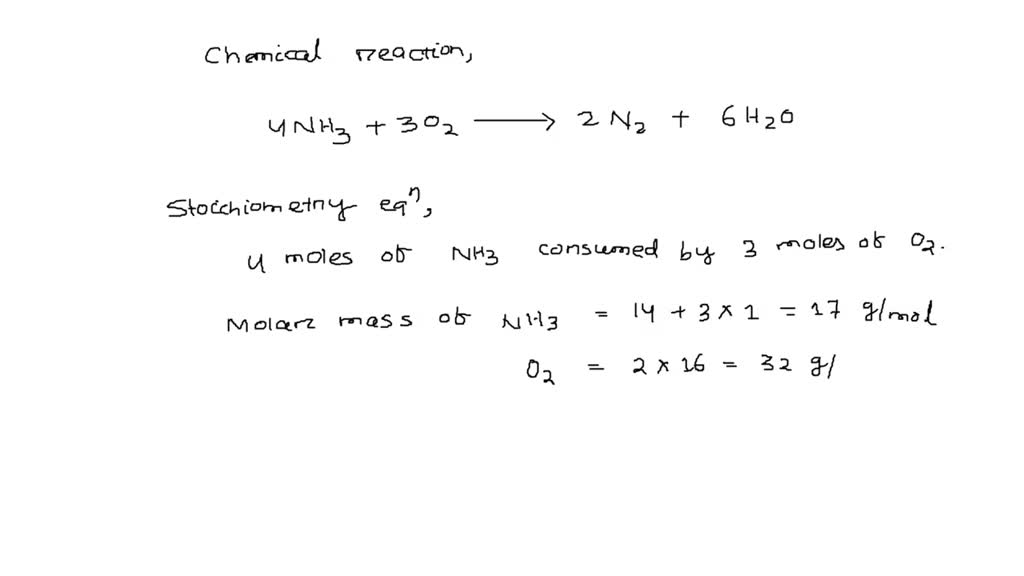 Chemical reaction,
4NH3 + 3O2 ⟶ 2N2 + 6H2O
Stoichiometry eqⁿ,
4 moles of NH3 consumed by 3 moles of O2.
Molar mass of NH3 = 14 + 3 × 1 = 17 g/mol
O2 = 2 × 16 = 32 g/